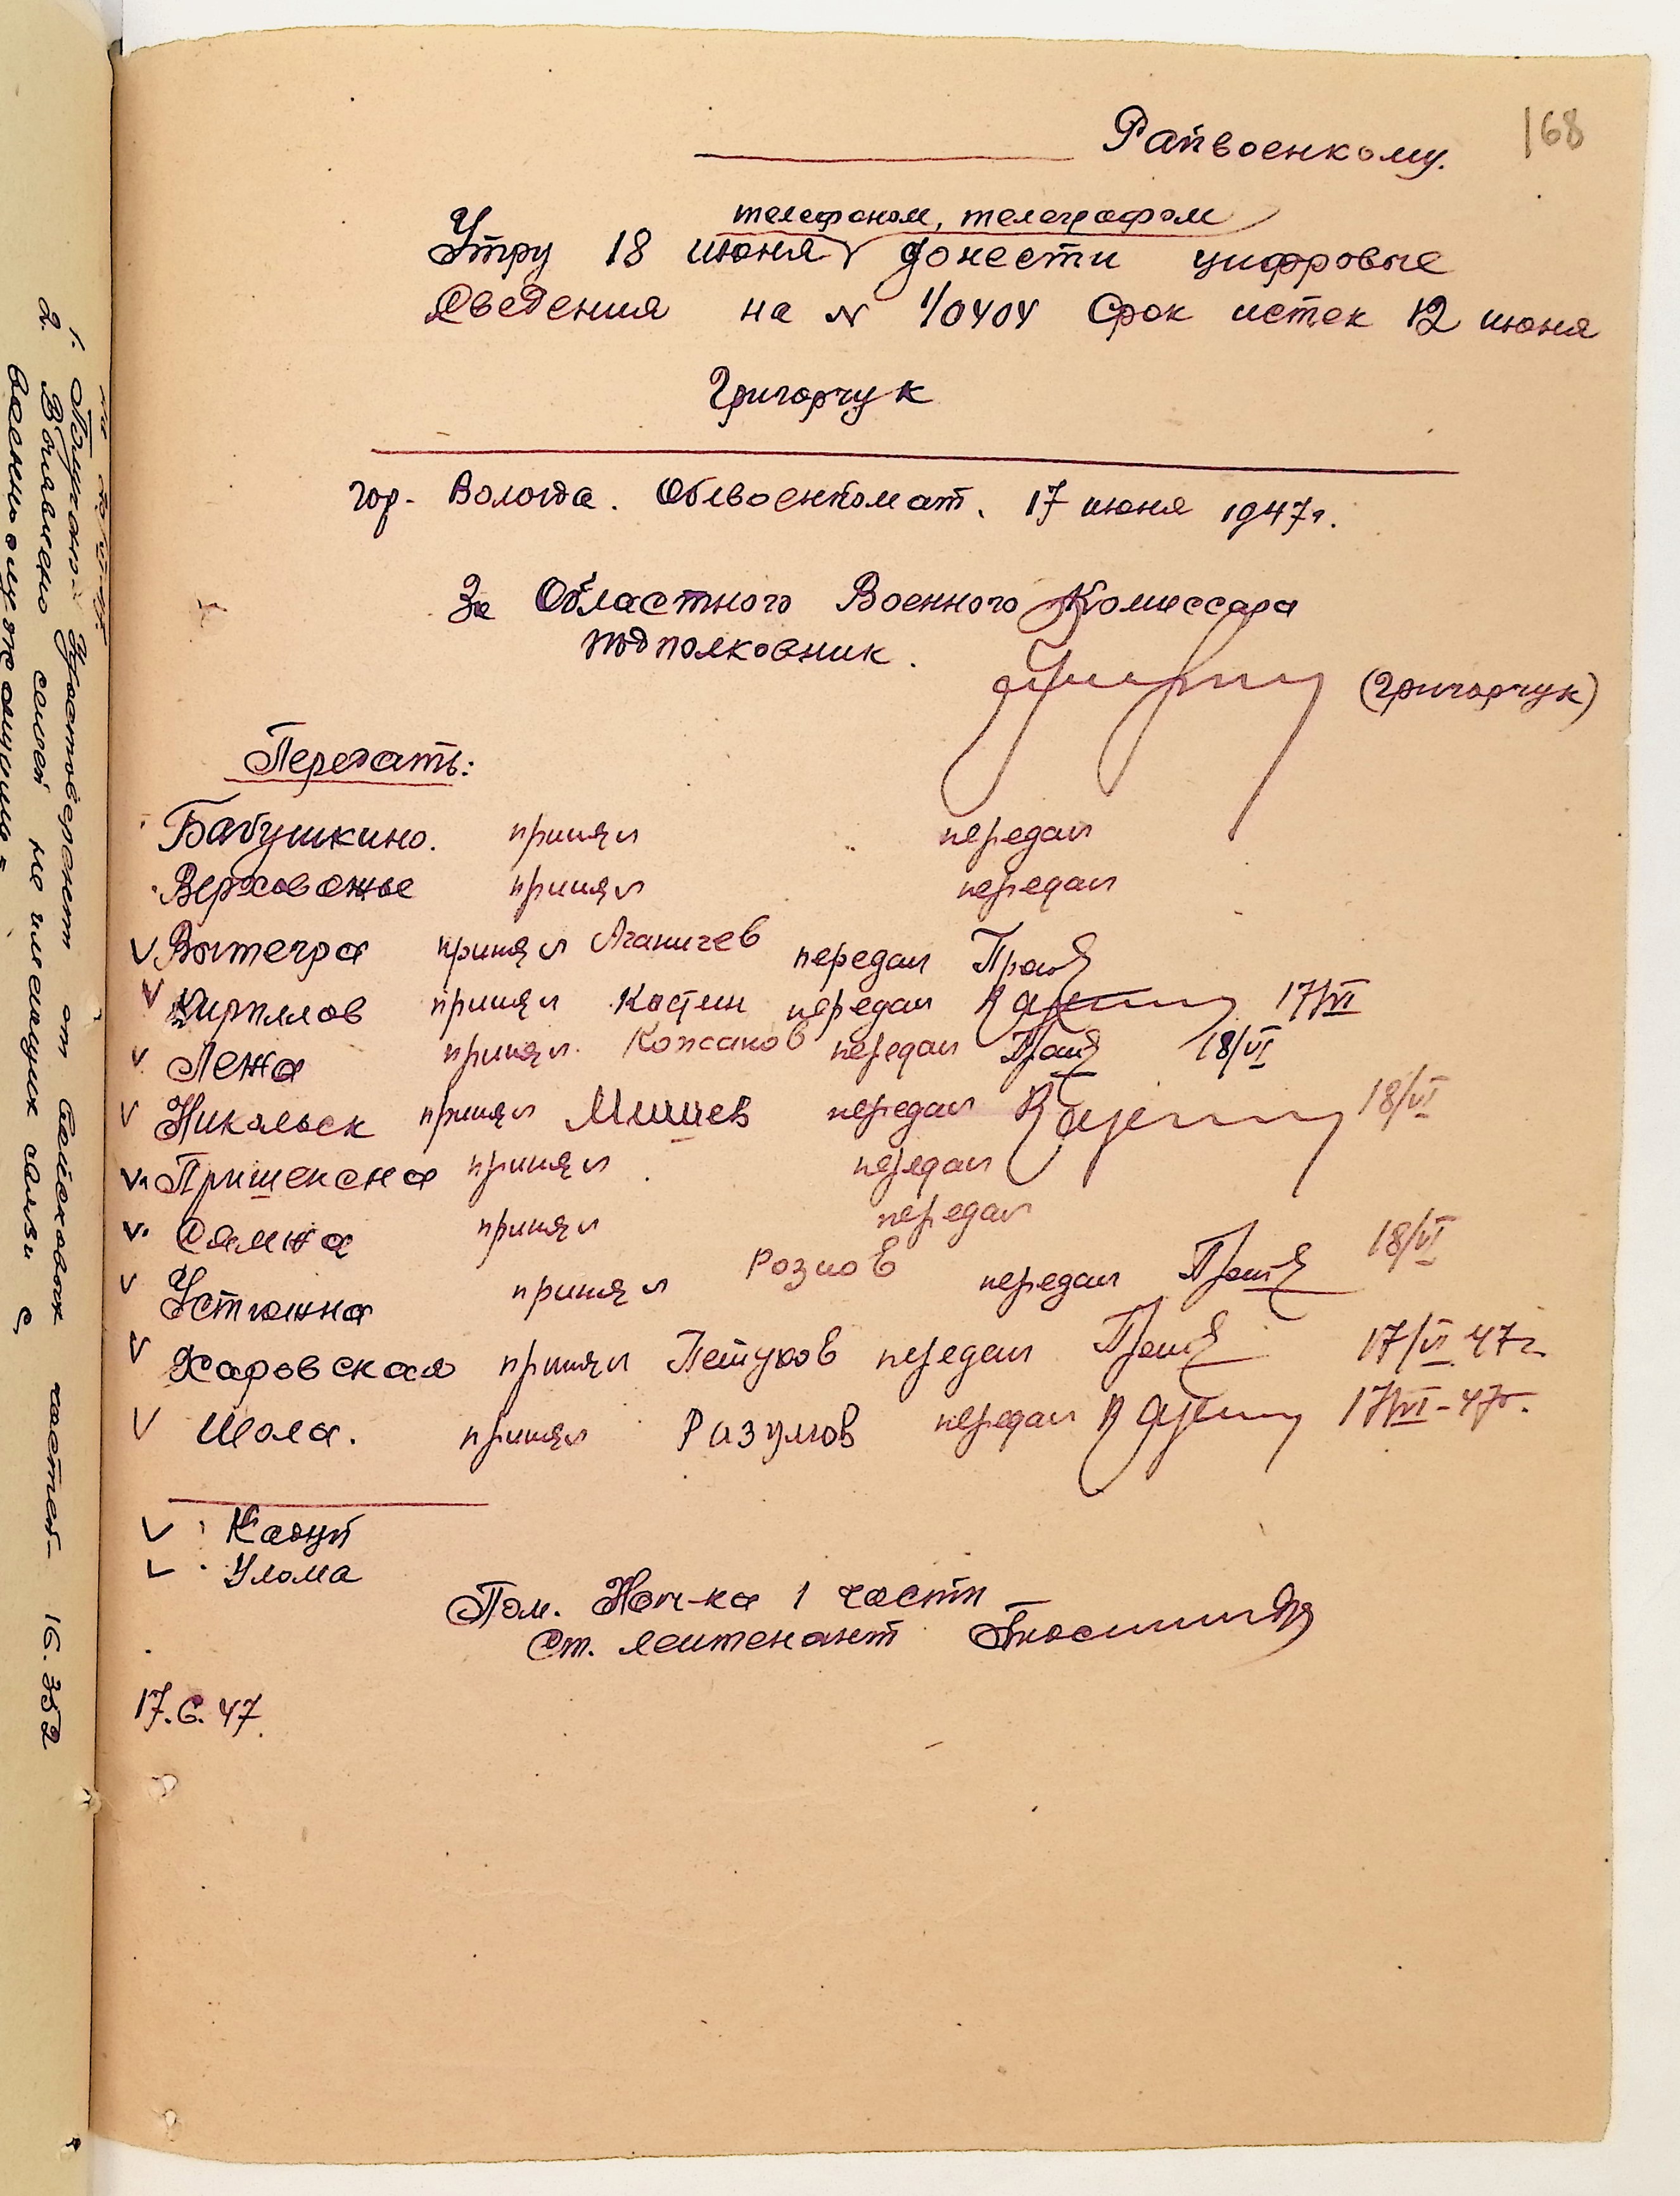 168
Райвоенкому.
телефоном, телеграфом
Утру 18 июня донести цифровые
сведения на № 1/0404 Срок истек 12 июня
Григорчук
гор. Вологда. Облвоенкомат. 17 июня 1947г.
За Областного Военного Комиссара
подполковник.
(Григорчук)
Передать:
Бабушкино. принял передал
Верховажье принял передал
Вытегра принял Аганичев передал
Кириллов принял Костин передал 17/VI
Лежа принял Кожаков передал 18/VI
Никольск принял Мишиев передал 18/VI
Пришексна принял передал
Сямжа принял передал
Устюжна принял Розиов передал 18/VI
Харовская принял Петухов передал 17/VI 47г
Шола. принял Разумов передал 17/VI-47г.
Кадуй
Улома
Пом. Нач-ка 1 части
Ст. лейтенант
17.6.47.
1. Получено Удостоверений от Войсковых частей- 16.352
2. Выявлено семей не имеющих связи с
военнослужащими